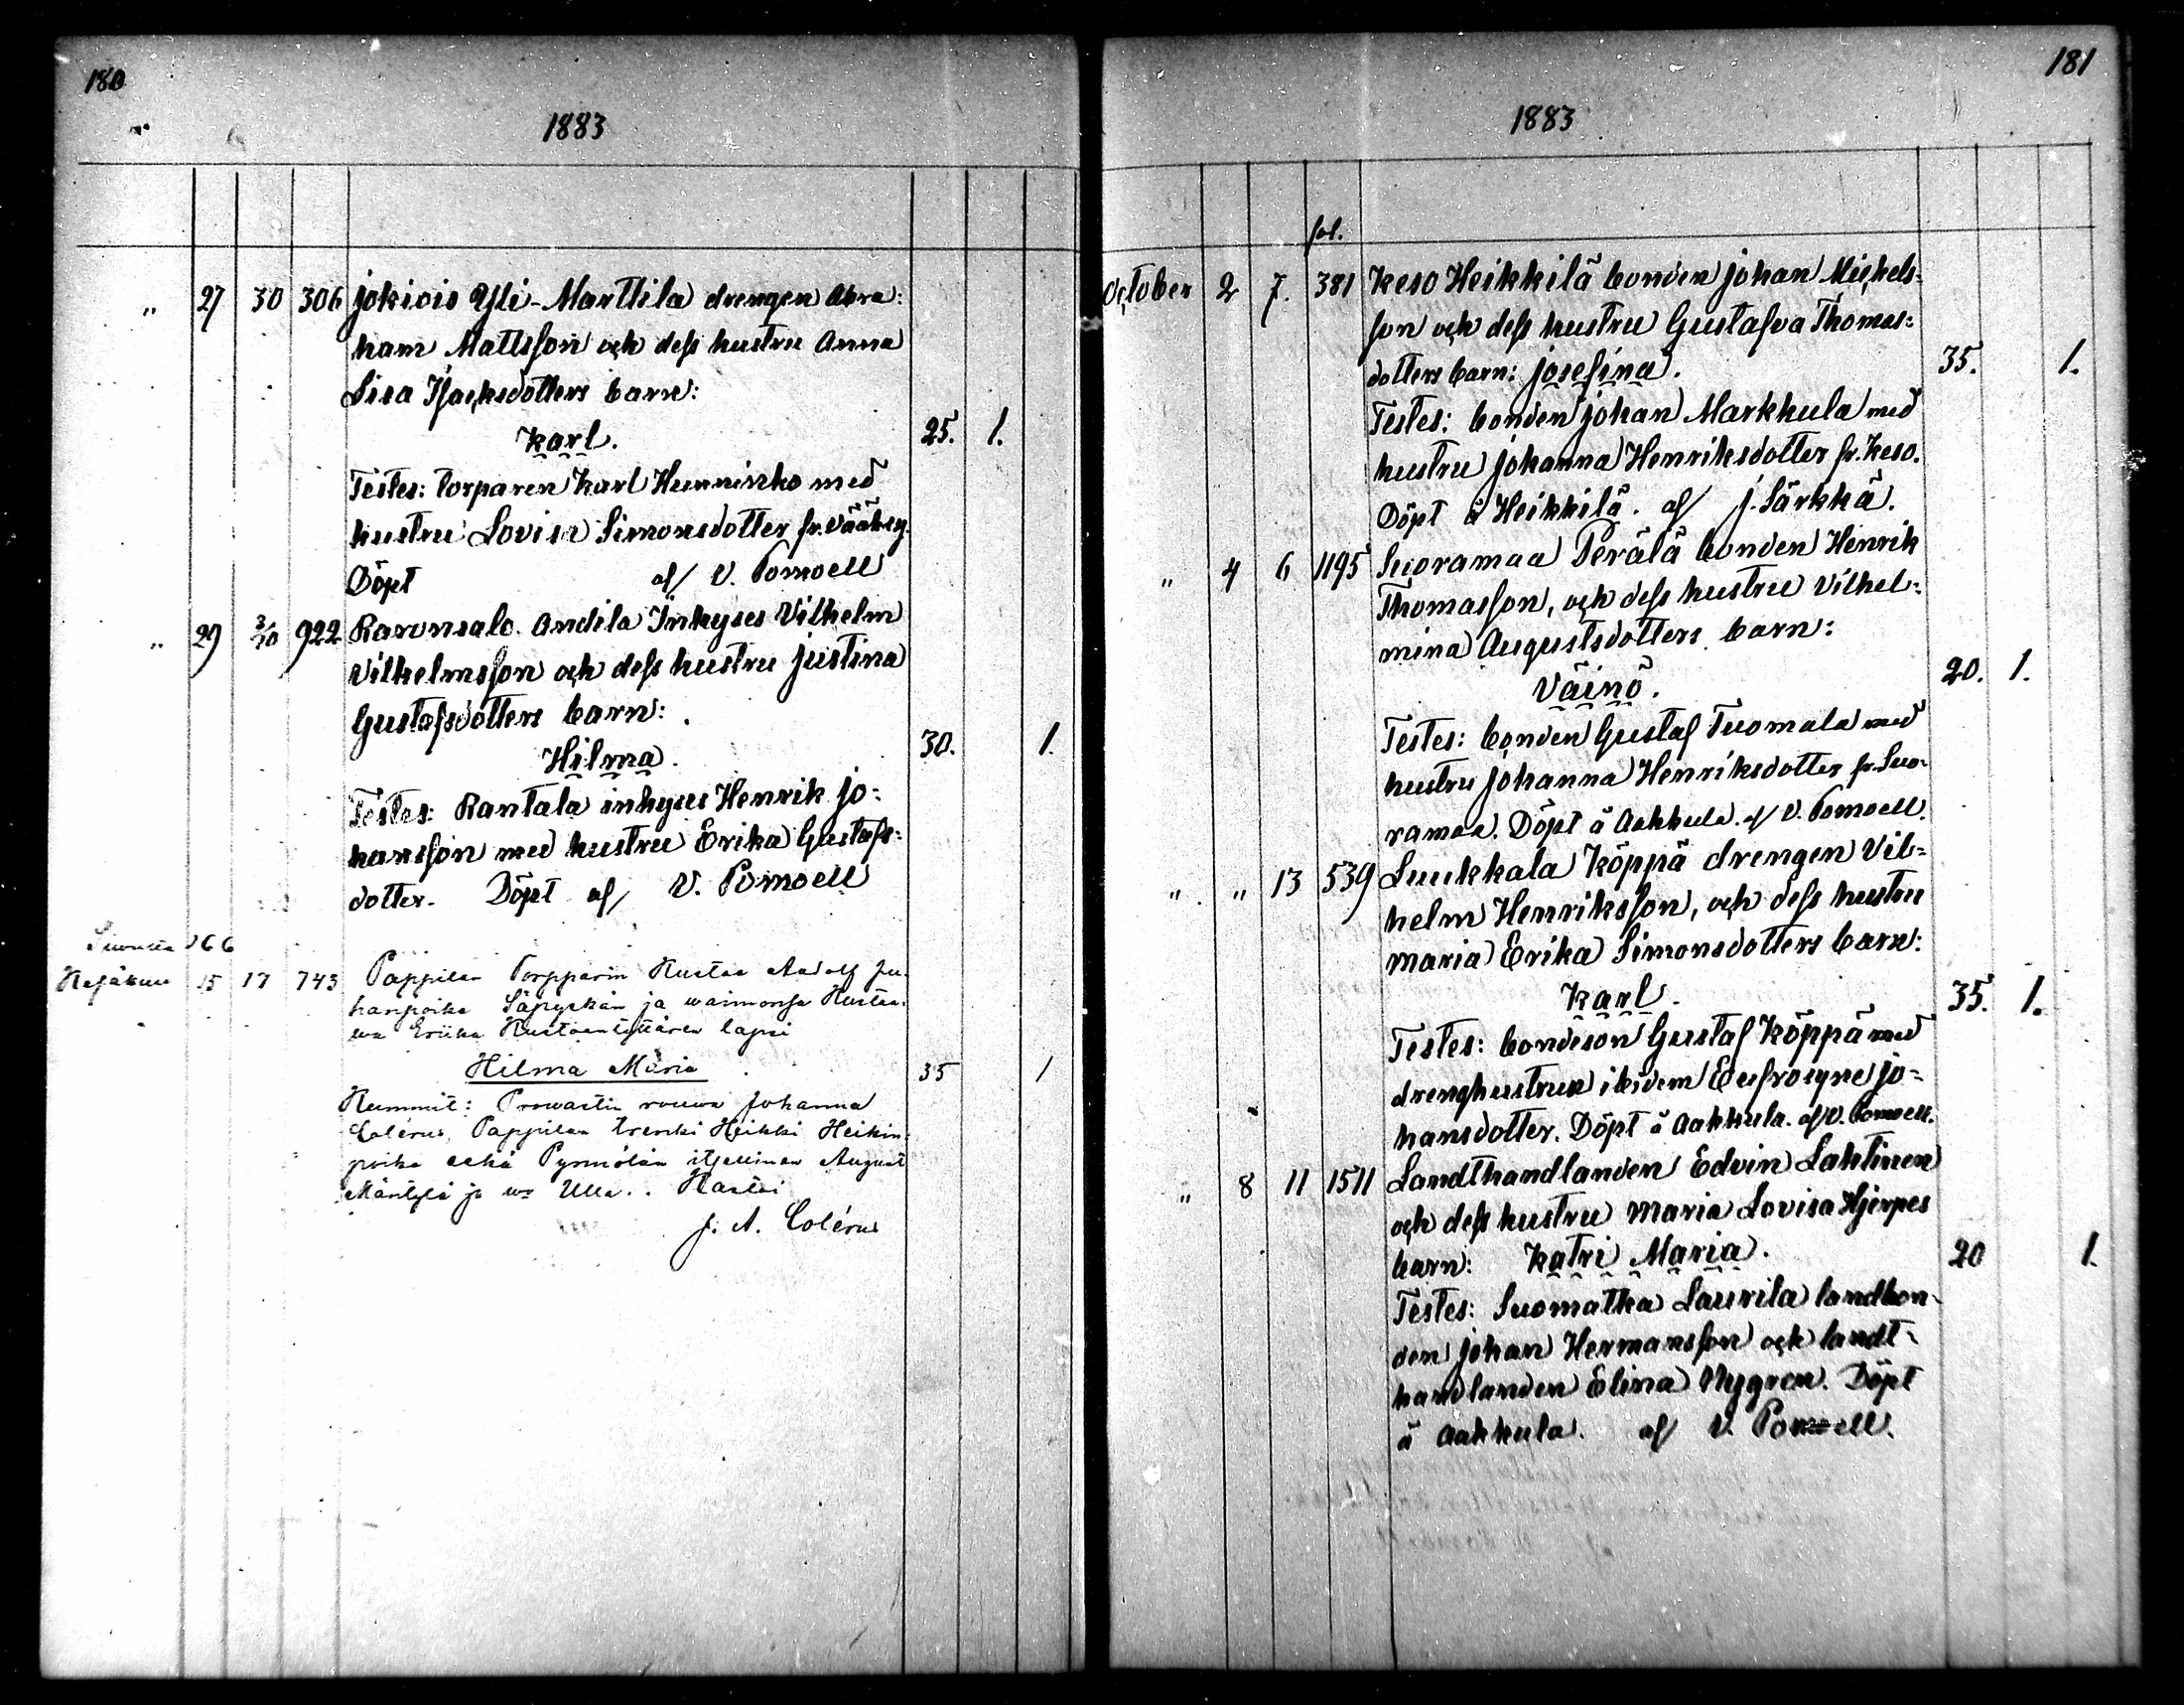 180
1883
" 27 30 306 Jokiois Yli-Marttila drengen Abra:
ham Mattsson och dess hustru Anna
Lisa Isacksdotters barn:
Karl. 25. 1.
Testes: torparen Karl Hunninko med
hustru Lovisa Simonsdotter fr. Vääksy.
Döpt af V. Pomoell
" 29 3/10 922 Raronsalo Andila Inhyses Vilhelm
Vilhelmsson och dess hustru Justina
Gustafsdotters barn:
Hilma. 30. 1.
Testes: Rantala inhyses Henrik Jo:
hansson med hustru Erika Gustafs:
dotter. Döpt af V. Pomoell
Siwusta 166
Hejäkuu 15 17 743 Pappilan Torpparin Kustaa Aadolf Ju-
hanpoika Säpyskän ja waimonsa Kustaa-
wa Eriika Kustaantyttären lapsi
Hilma Maria 35 1
Kummit: Prowastin rouwa Johanna
Colérus, Pappilan trenki Heikki Heikin-
poika sekä Pynnölän itsellinen August
Mäntylä ja w:o Ulla. Kastoi
J. A. Colérus
181
1883
fol.
October 2 7. 381 Keso Heikkilä bonden Johan Michels-
son och dess hustru Gustafva Thomas:
dotters barn: Josefina. 35. 1.
Testes: bonden Johan Markkula med
hustru Johanna Henriksdotter fr. Keso.
Döpt å Heikkilä. af J. Särkkä.
" 4 6 1195 Suoramaa Perälä bonden Henrik
Thomasson, och dess hustru Vilhel-
mina Augustsdotters barn:
Väinö. 20. 1.
Testes: bonden Gustaf Tuomala med
hustru Johanna Henriksdotter fr. Suo-
ramaa. Döpt å Aakkula. af V. Pomoell.
" " 13 539 Luukkala Köppä drengen Vil-
helm Henriksson, och dess hustru
Maria Erika Simonsdotters barn:
Karl. 35. 1.
Testes: bondeson Gustaf Köppä med
drenghustrun ibidem Eufrosyne Jo-
hansdotter. Döpt å Aakkula. af V. Pomoell.
" 8 11 1511 Landthandlanden Edvin Lahtinen
och dess hustru Maria Lovisa Hjerpes
barn: Katri Maria. 20 1.
Testes: Suomatka Laurila landbon-
den Johan Hermansson och landt-
handlanden Elina Nygren. Döpt
å Aakkula. af V. Pomoell.